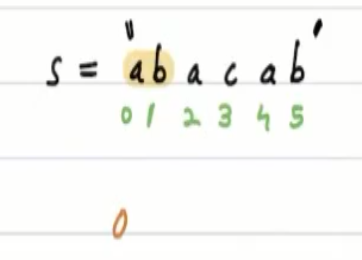 s = "abacab"
0 1 2 3 4 5
0